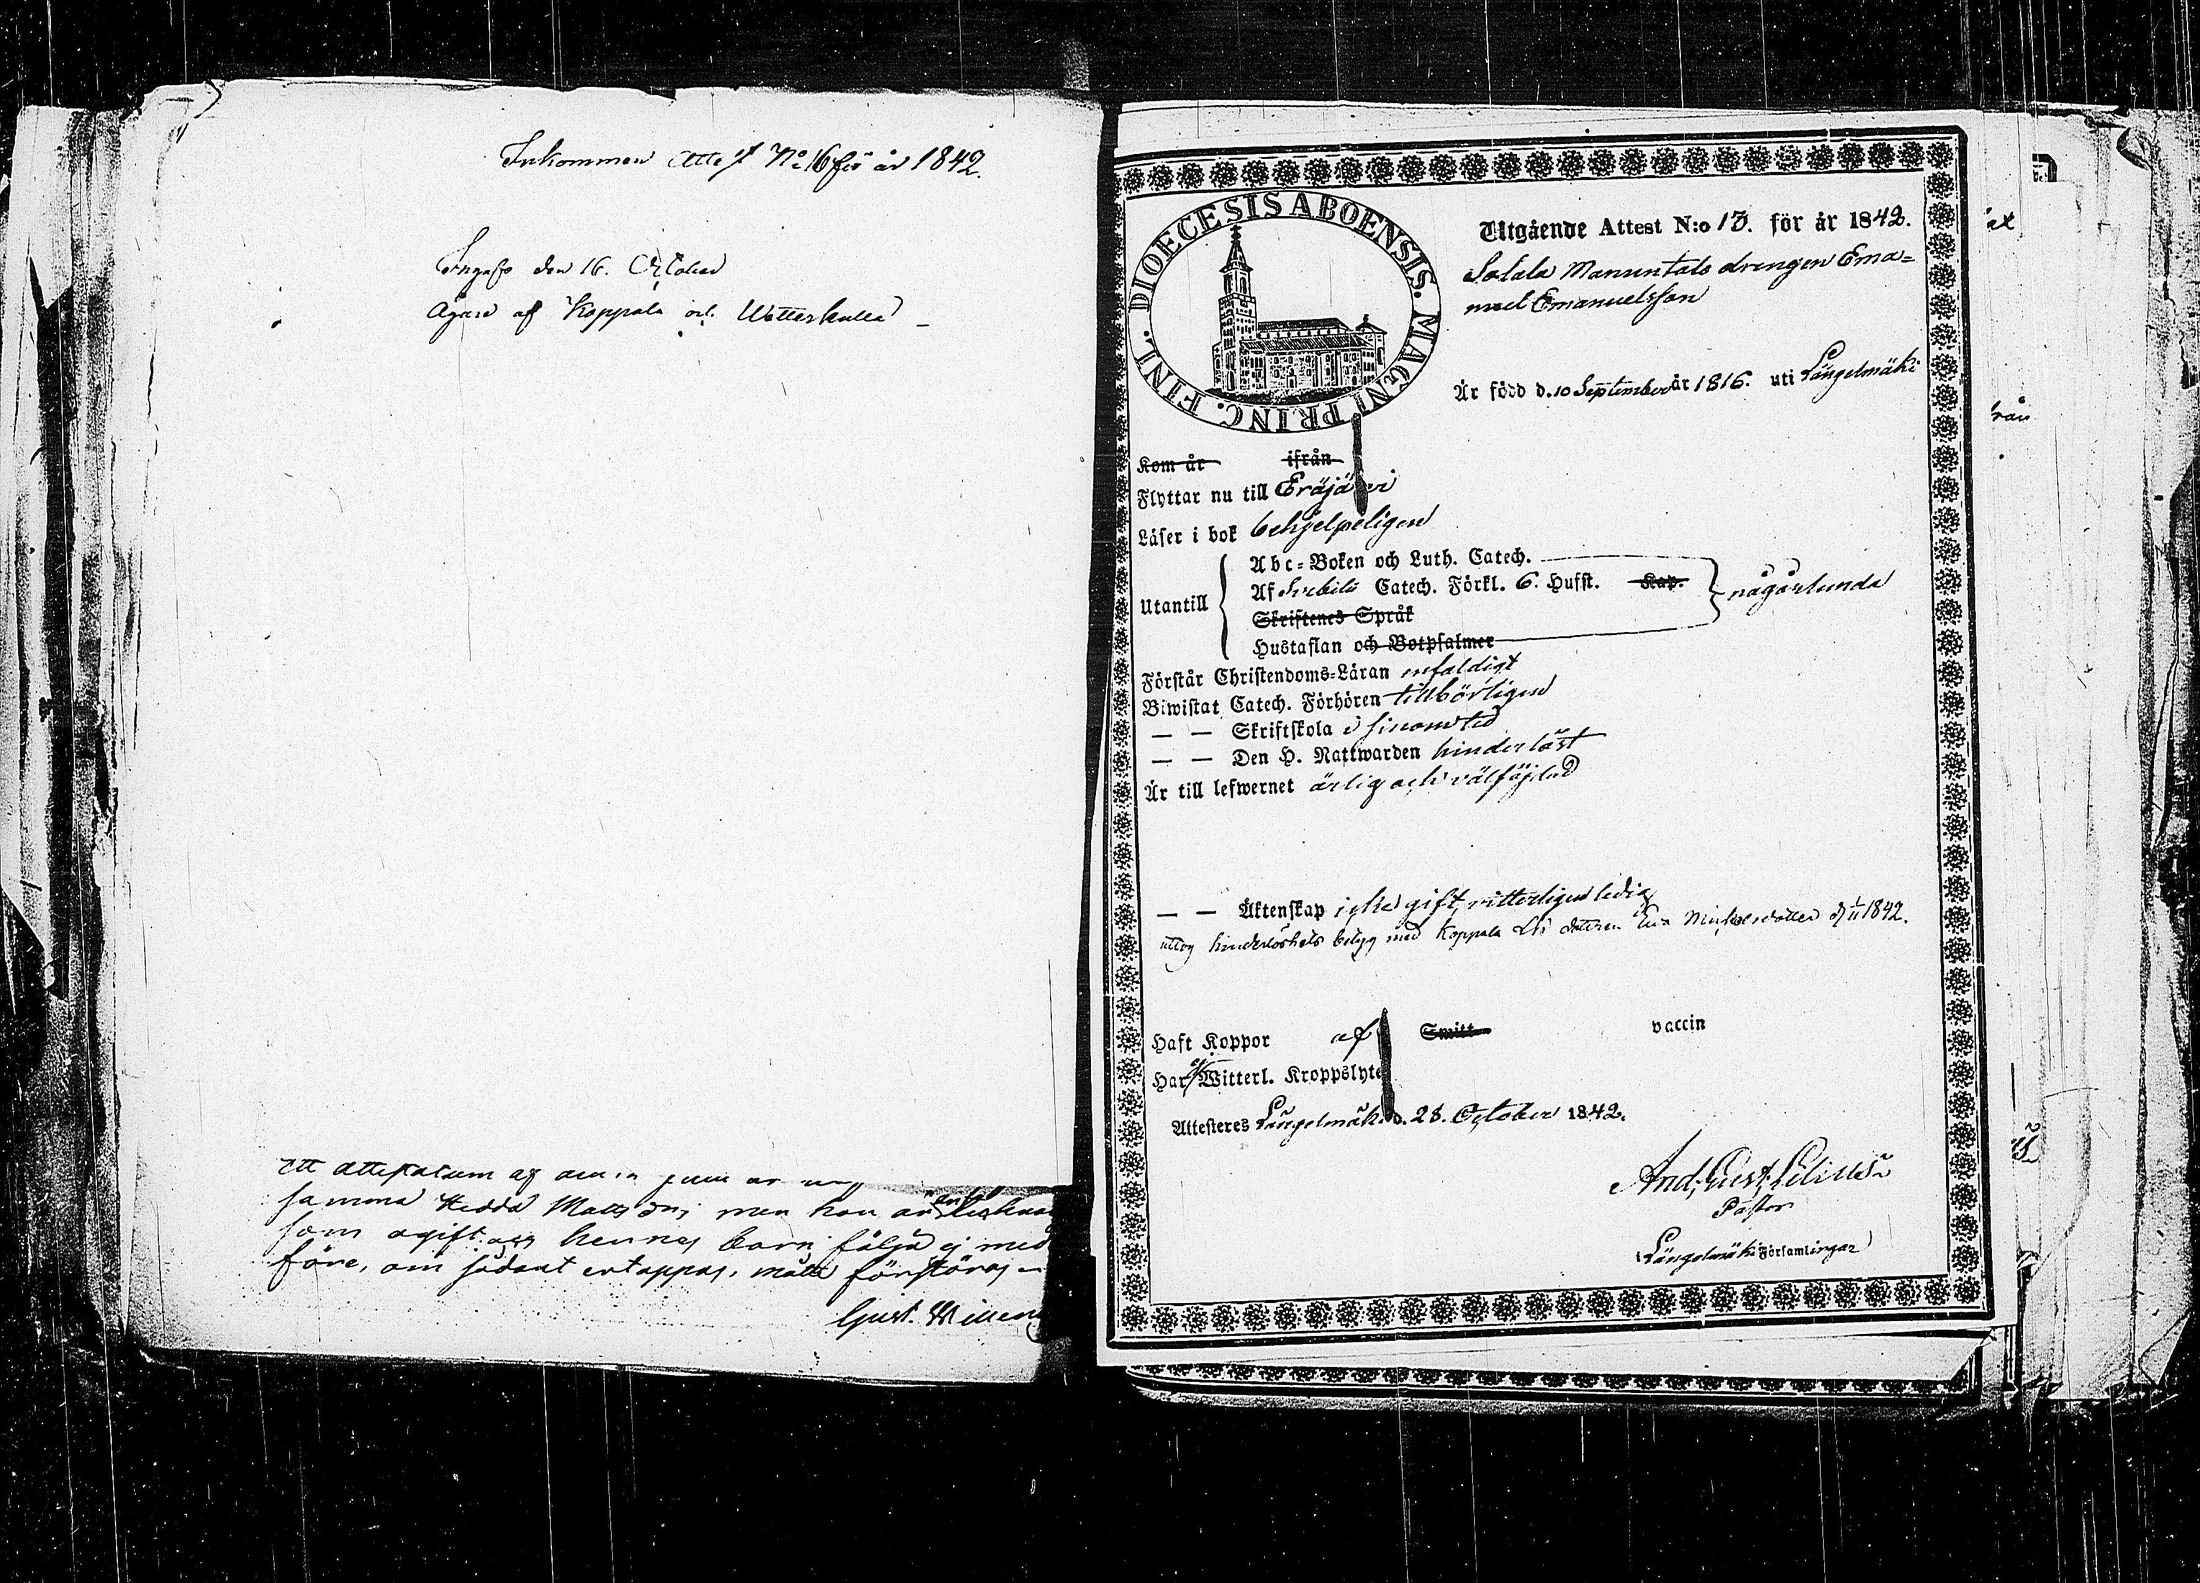 Inkommen Attest No 16 för år 1842.
Ingafs den 16. October
Ägare af Koppala och Wetterkulla
samma Hedda Matts dr, men hon är
som ogift och hennes barn följa ej med
före, om sådant ertappas, måtte förstöras
Gust.
DIOECESIS ABOENSIS. MAGNI PRINC. FINL.
Utgående Attest N:o 13. för år 1842.
Salala Manuntalo drengen Ema=
nuel Emanuelsson
Är född d. 10 September år 1816. uti Längelmäki
Kom år ifrån
Flyttar nu till Eräjärvi
Läser i bok behjelpeligen
Utantill
Abc=Boken och Luth. Catech.
Af Svebilii Catech. Förkl. 6. Hufst. Kap.
någorlunda
Skriftenes Språk
Hustaflan och Botpsalmer
Förstår Christendoms=Läran enfaldigt
Biwistat Catech. Förhören tillbörligen
— — Skriftskola i sinom tid
— — Den H. Nattwarden hinderlöst
Är till lefwernet ärlig och välfrejdad
— — Äktenskap icke gift, vitterligen ledig
uttog hinderlöshets betyg med Koppala dottren Eva Michelsdotter 1842.
Haft Koppor af Smitt vaccin
Har ej Witterl. Kroppslyte
Attesteres Längelmäki d. 28. October 1842.
And. Gust. Lilius
Pastor
Längelmäki Församlingar
rån